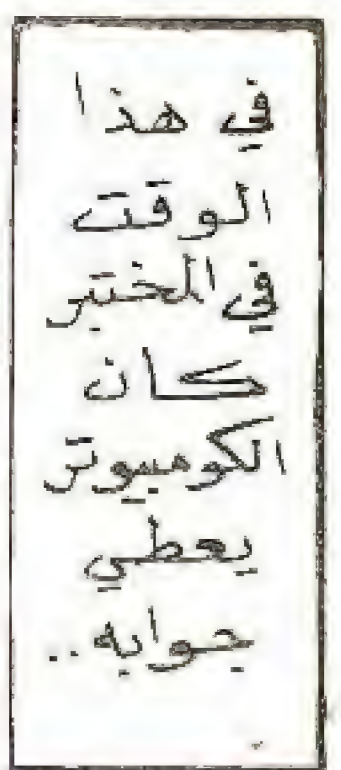 في هذا
الوقت
في المختبر
كان
الكومبيوتر
يعطي
جوابه..